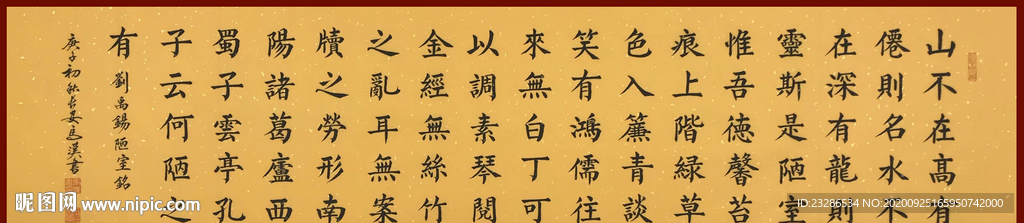 山不在髙不
僊則名水不
在深有龍則
靈斯是陋室
惟吾徳馨苔
痕上階緑草
色入簾青談
笑有鴻儒往
來無白丁可
以調素琴閱
金經無絲竹
之亂耳無案
牘之勞形南
陽諸葛廬西
蜀子雲亭孔
子云何陋之
有
劉禹錫陋室銘
庚子初秋
昵图网 www.nipic.com
ID:23286534 NO:20200925165950742000